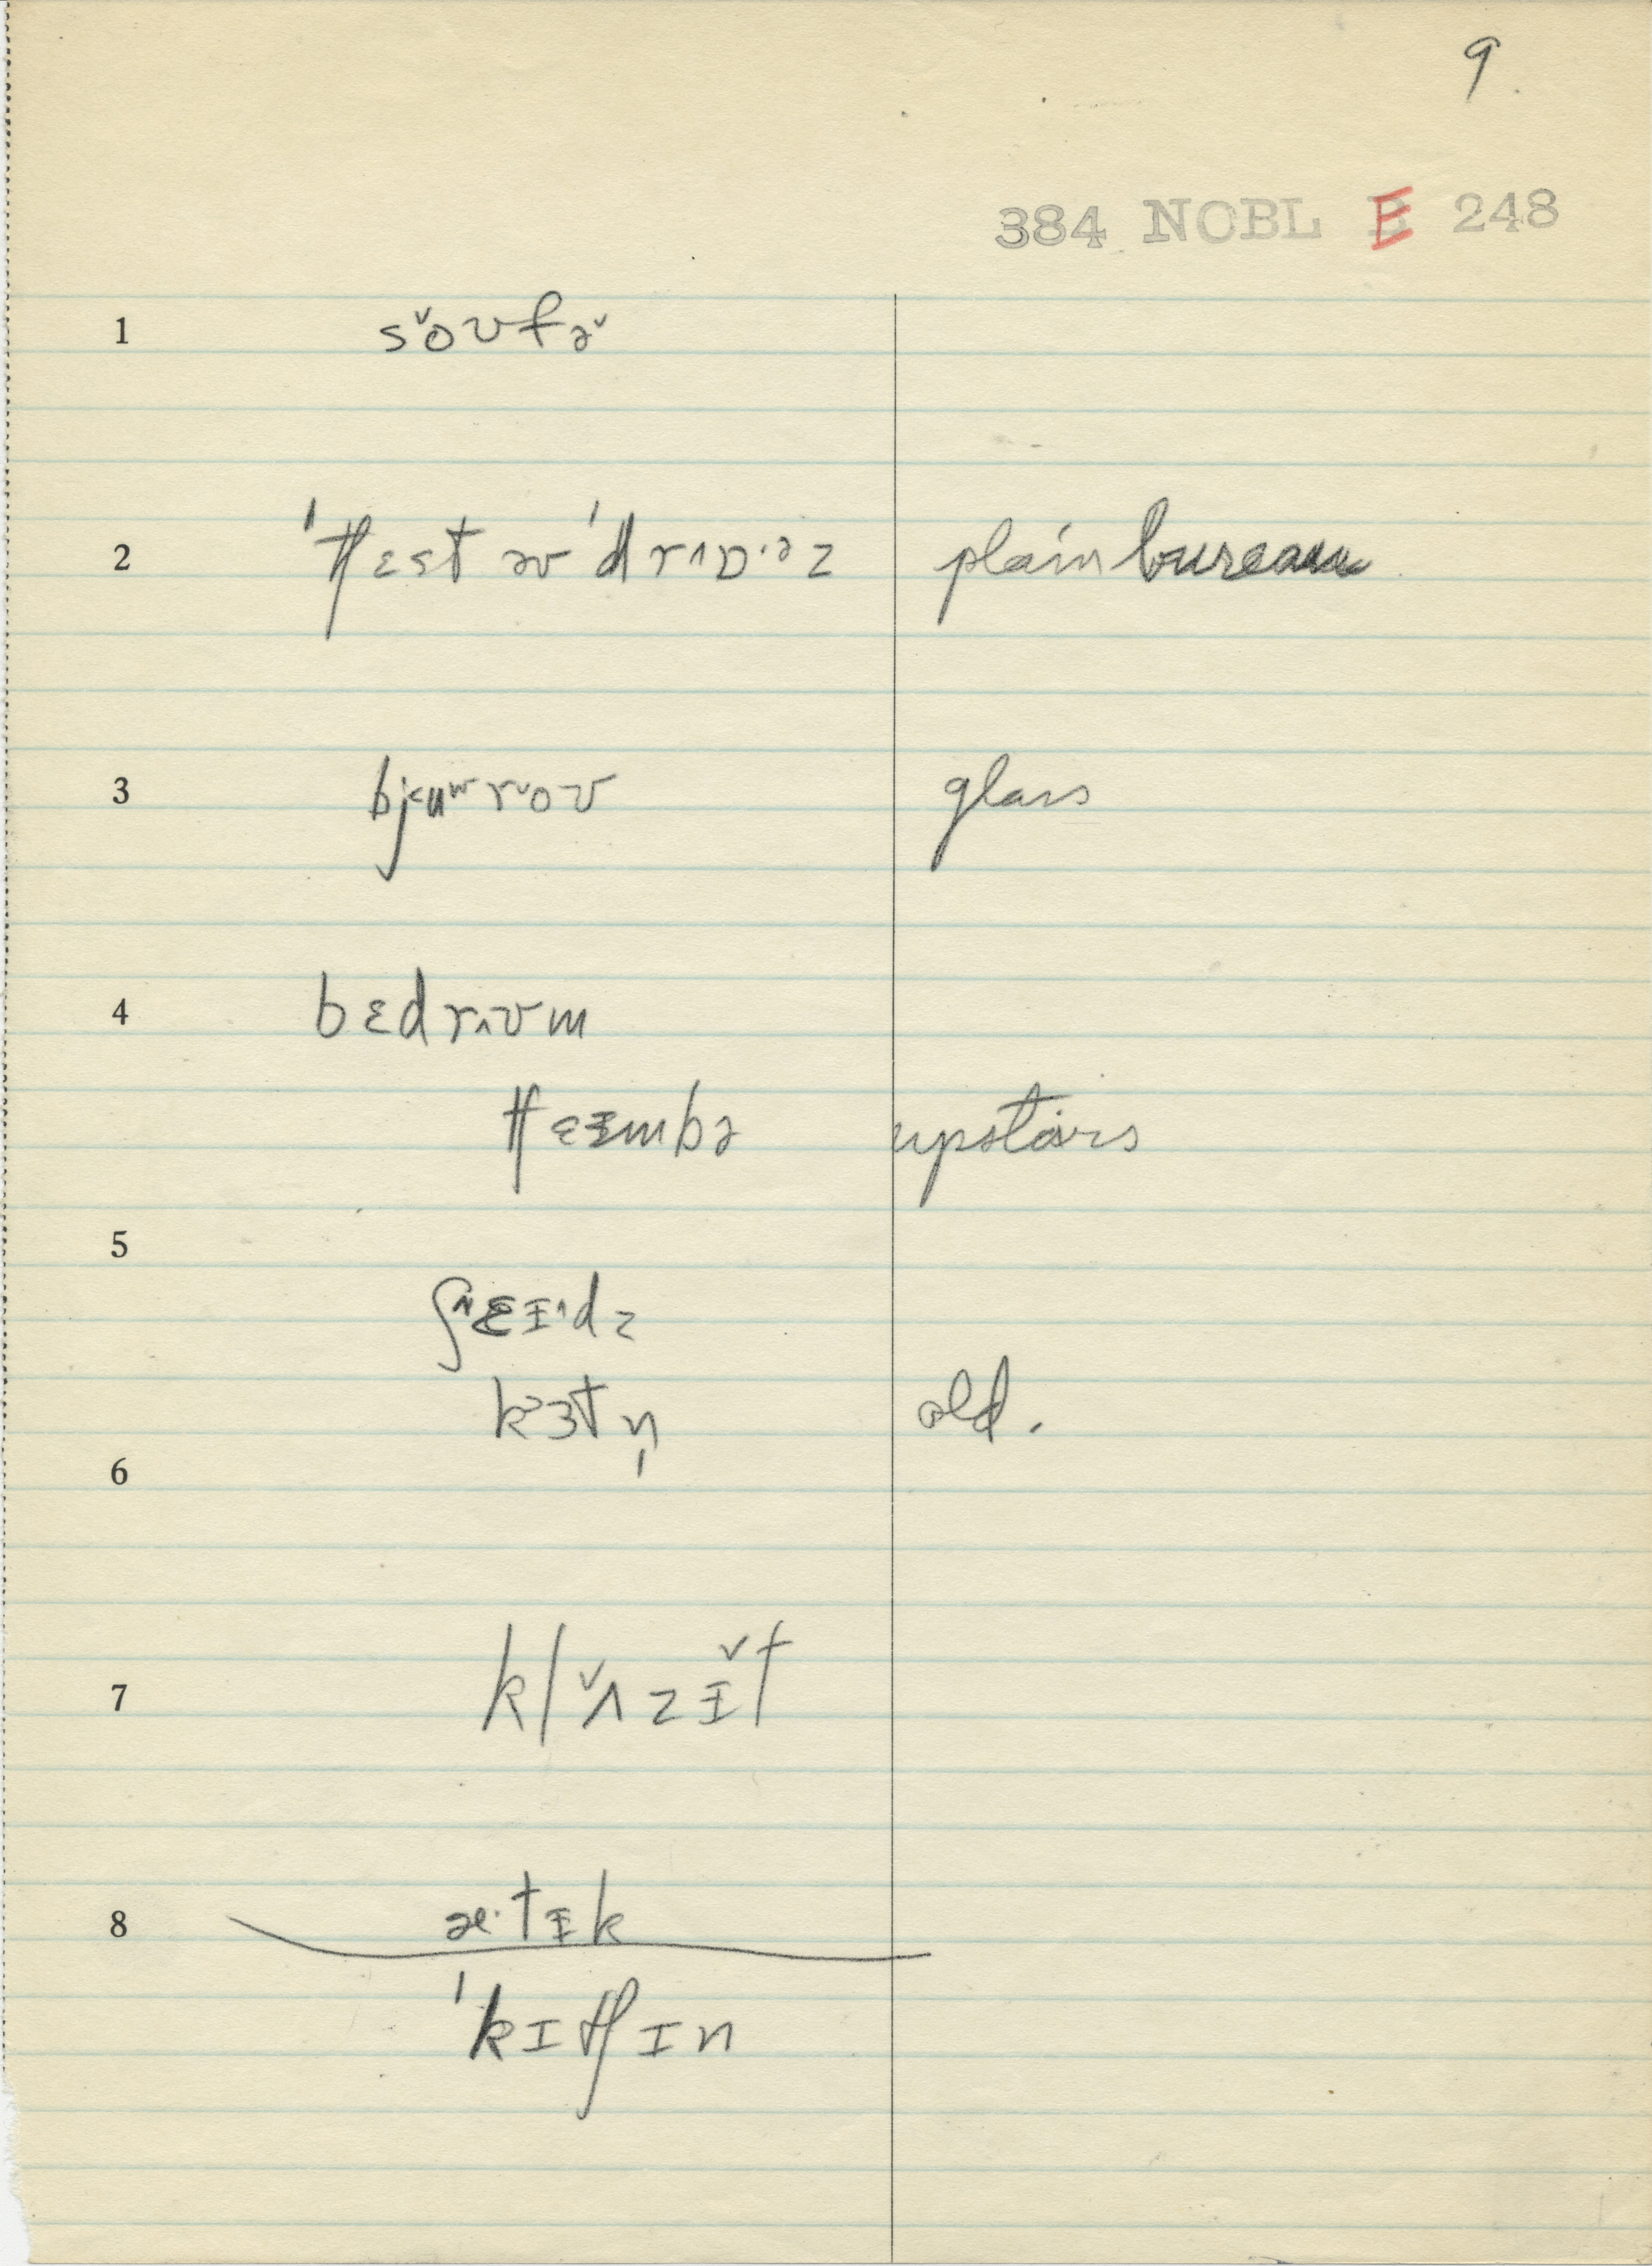 9.
384 NOBL E 248
1 s˅oʊfə˅
2 ˈtʃɛst əv ˈdrʌɒ·əz plain bureau
3 bj˂uʷr˅oʊ glass
4 bɛdr˄ʊm
tʃɛɪmbə upstairs
5
ʃ˄ɛɪ˄dz
k³ɜtn̩ old.
6
7 kl˅ʌzɪ˅t
8 æ·tɪk
ˈkɪtʃɪn